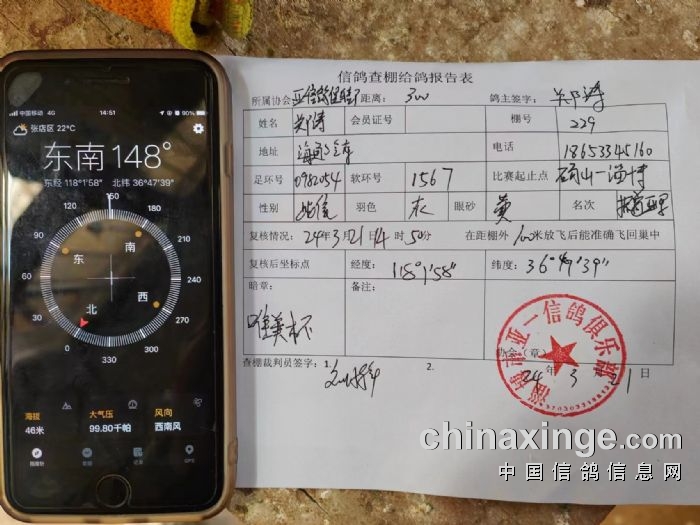 中国移动 4G 14:51 90%
张店区 22°C
东南 148°
东经 118°1'58" 北纬 36°47'39"
150
120
180
90
210
60
240
30
270
0
300
330
东
南
北
西
海拔
46米
大气压
99.80千帕
风向
西南风
指南针
记录
GPS
信鸽查棚给鸽报告表
所属协会: 距离: 鸽主签字:
姓名 郑涛 会员证号 棚号 229
地址 电话 18653345160
足环号 0982054 软环号 1567 比赛起止点 砀山—淄博
性别 羽色 灰 眼砂 黄 名次
复核情况: 24年3月21日14时50分 在距棚外100米放飞后能准确飞回巢中
复核后坐标点 经度: 118°1'58" 纬度: 36°47'39"
暗章: 备注:
唯美杯
淄博市亚一信鸽俱乐部
协会(章)
查棚裁判员签字: 1. 2. 24年3月21日
chinaxinge.com
中国信鸽信息网